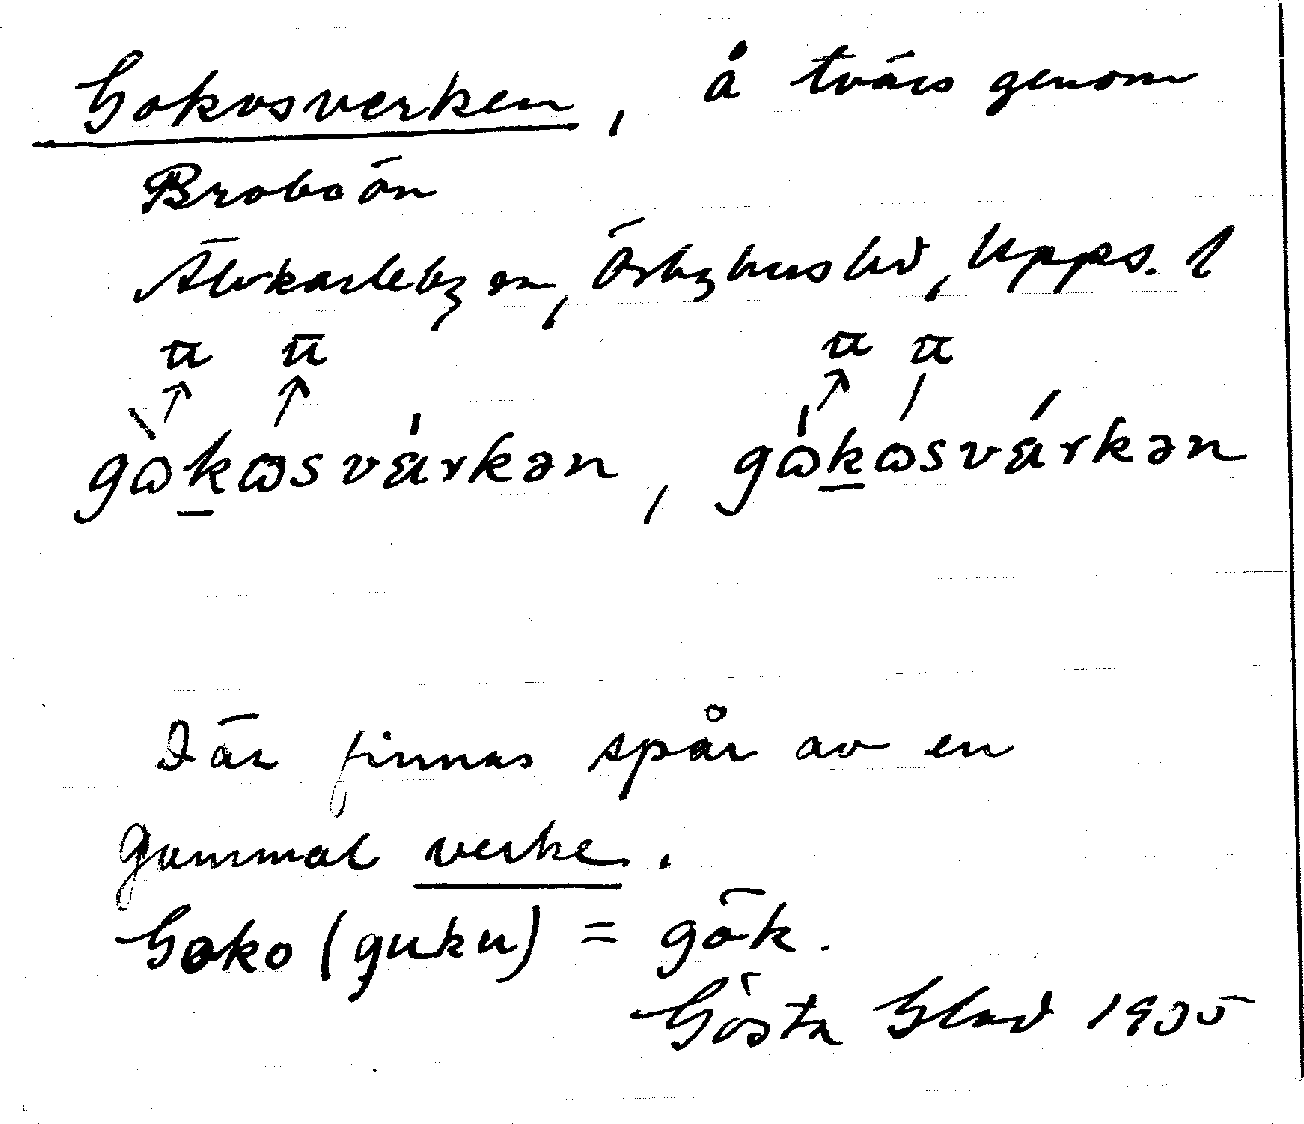 Gokosverken, å tvärs genom
Broboön
Älvkarleby sn, Örbyhus hd, Upps. l
ɷ ɷ ɷ ɷ
gɷ̀kɷsvárkən, gɷ́kɷsvárkən
Där finnas spår av en
gammal verke.
Goko (guku) = gök.
Gösta Glad 1935